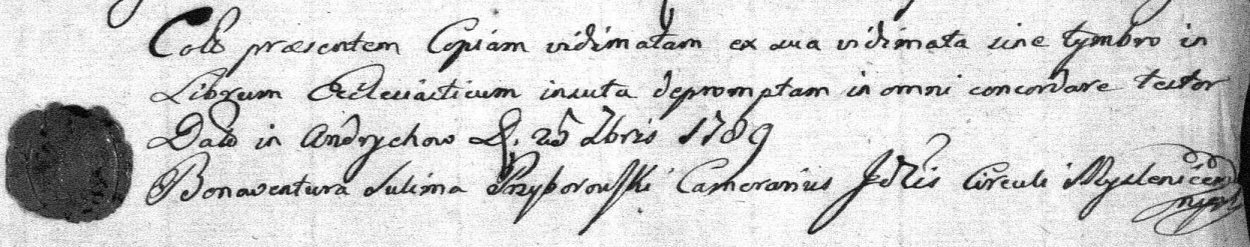 præsentem Copiam vidimatam ex sua vidimata sine tymbro in
Librum Ecclesiasticum insuta depromptam in omni concordare testor
in Andrychow D. 25 1789
Bonaventura Sulima Przyborowski Camerarius Circuli